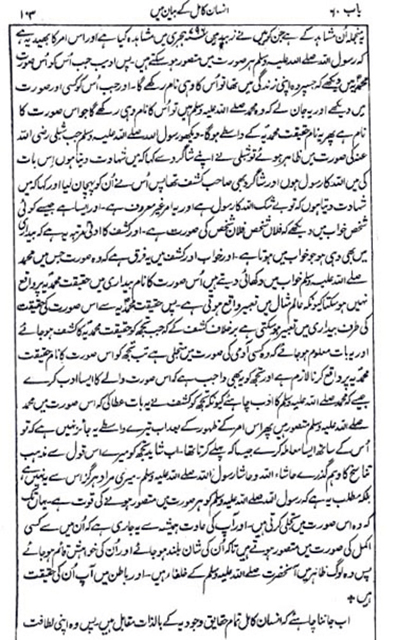 باب ۶۰ انسان کامل کے بیان میں ۱۰۳
یہ منجملہ اُن مشاہد کے ہے جن کو میں نے زبید میں ۷۹۶ ہجری میں مشاہدہ کیا ہے اور اس امر کا بھید یہ ہے
کہ رسول اللہ صلے اللہ علیہ وسلم ہر صورت میں متصور ہو سکتے ہیں۔ پس ادیب جب اُس کو اُس صورت
محمدیہ میں دیکھے کہ جسپر وہ اپنی زندگی میں تھا تو اُس کا وہی نام رکھے گا۔ اور جب اُس کو کسی اور صورت
میں دیکھے اور یہ جان لے کہ وہ محمد صلے اللہ علیہ وسلم ہیں تو اُس کا نام وہی رکھے گا جو اس صورت کا
نام ہے پھر یہ نام حقیقت محمدیہ کے واسطے ہوگا۔ دیکھو رسول اللہ صلے اللہ علیہ وسلم جب شبلی رضی اللہ
عنہ کی صورت میں ظاہر ہوئے تو شبلی نے اپنے شاگرد سے کہا کہ میں شہادت دیتا ہوں اِس بات
کی میں اللہ کا رسول ہوں اور شاگرد بھی صاحب کشف تھا پس اُس نے اُن کو پہچان لیا اور کہا کہ میں
شہادت دیتا ہوں کہ تو بے شک اللہ کا رسول ہے اور یہ امر غیر معروف ہے۔ اور ایسا ہے جیسے کوئی
شخص خواب میں دیکھے کہ فلاں شخص فلاں شخص کی صورت ہے۔ اور کشف کا ادنیٰ مرتبہ یہ ہے کہ بیداری
میں بھی وہی ہو جو خواب میں ہوتا ہے۔ اور خواب اور کشف میں یہ فرق ہے کہ وہ صورت جس میں محمد
صلے اللہ علیہ وسلم خواب میں دکھائی دیتے ہیں اُس صورت کا نام بیداری میں حقیقت محمدیہ پر واقع
نہیں ہو سکتا کیونکہ عالم مثال میں تعبیر واقع ہوتی ہے۔ پس حقیقت محمدیہ سے اس صورت کی حقیقت
کی طرف بیداری میں تعبیر ہو سکتی ہے برخلاف کشف کے کہ جب تجھ کو حقیقت محمدیہ کا کشف ہو جائے
اور یہ بات معلوم ہو جائے کہ وہ کسی آدمی کی صورت میں متجلی ہے تب تجھ کو اس صورت کا نام حقیقت
محمدیہ پر واقع کرنا لازم ہے اور تجھ کو یہ بھی واجب ہے کہ اس صورت والے کا ایسا ادب کرے
جیسے کہ محمد صلے اللہ علیہ وسلم کا ادب چاہئے کیونکہ تجھ کو کشف نے یہ بات عطا کی کہ اس صورت میں محمد
صلے اللہ علیہ وسلم متصور ہیں پھر اس امر کے ظہور کے بعد اب تیرے واسطے یہ جائز نہیں ہے کہ تو
اُس کے ساتھ ایسا معاملہ کرے جیسا کہ پہلے کرتا تھا۔ اب شاید تجھ کو میرے اس قول سے مذہب
تناسخ کا وہم گذرے حاشاء اللہ وحاشا رسول اللہ صلے اللہ علیہ وسلم۔ میری مراد ہرگز اس سے یہ نہیں ہے
بلکہ مطلب یہ ہے کہ رسول اللہ صلے اللہ علیہ وسلم کو ہر صورت میں متصور ہونے کی قوت ہے۔ یہانتک
کہ وہ اس صورت میں تجلی کرتی ہیں۔ اور آپ کی عادت ہمیشہ سے یہ جاری ہے کہ اُن میں سے کسی
اکمل کی صورت میں متصور ہوتے ہیں تاکہ اُن کی شان بلند ہو جائے اور اُن کی خواہش قائم ہو جائے
پس وہ لوگ ظاہر میں آنحضرت صلے اللہ علیہ وسلم کے خلفاء ہیں۔ اور باطن میں آپ اُن کی حقیقت
ہیں ❖
اب جاننا چاہئے کہ انسان کامل تمام حقایق وجودیہ کے بالذات مقابل ہیں۔ پس وہ اپنی لطافت